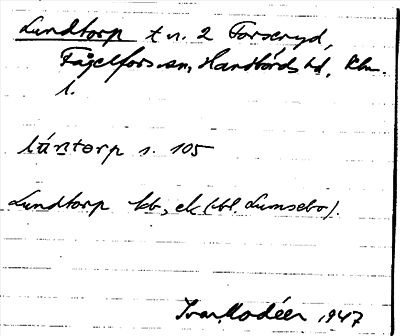 Lundtorp t n. 2 Forseryd,
Fågelfors sn, Handbörds hd, Klm.
l.
lúntorp s. 105
Lundtorp kb, ek (bl. Lumsebo).
Ivar Modéer 1947